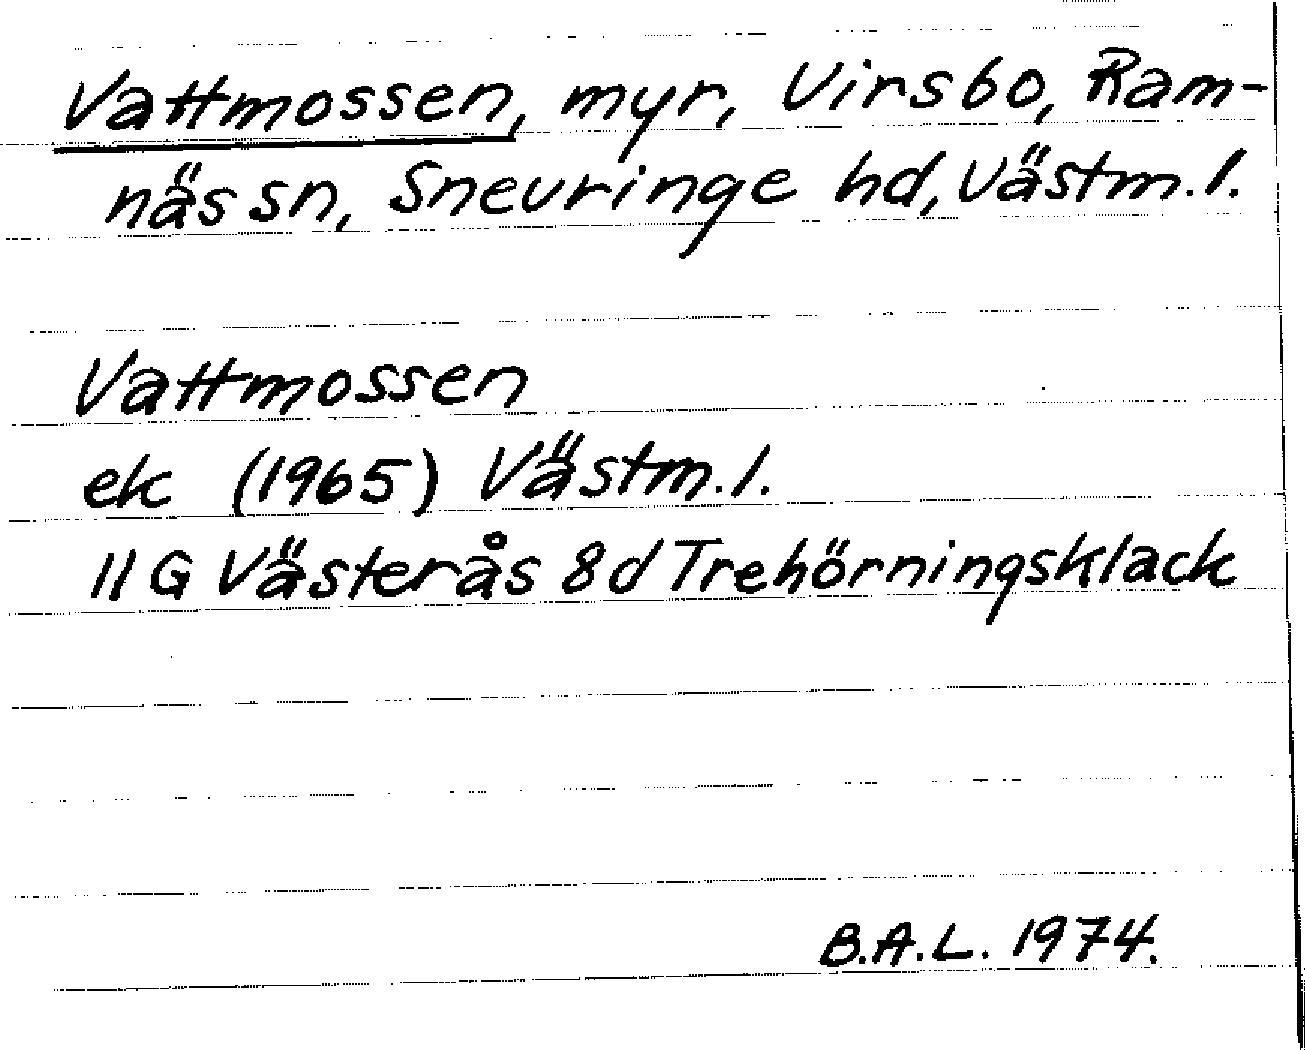 Vattmossen, myr, Virsbo, Ram-
näs sn, Snevringe hd, Västm.l.
Vattmossen
ek (1965) Västm.l.
11G Västerås 8d Trehörningsklack
B.A.L. 1974.